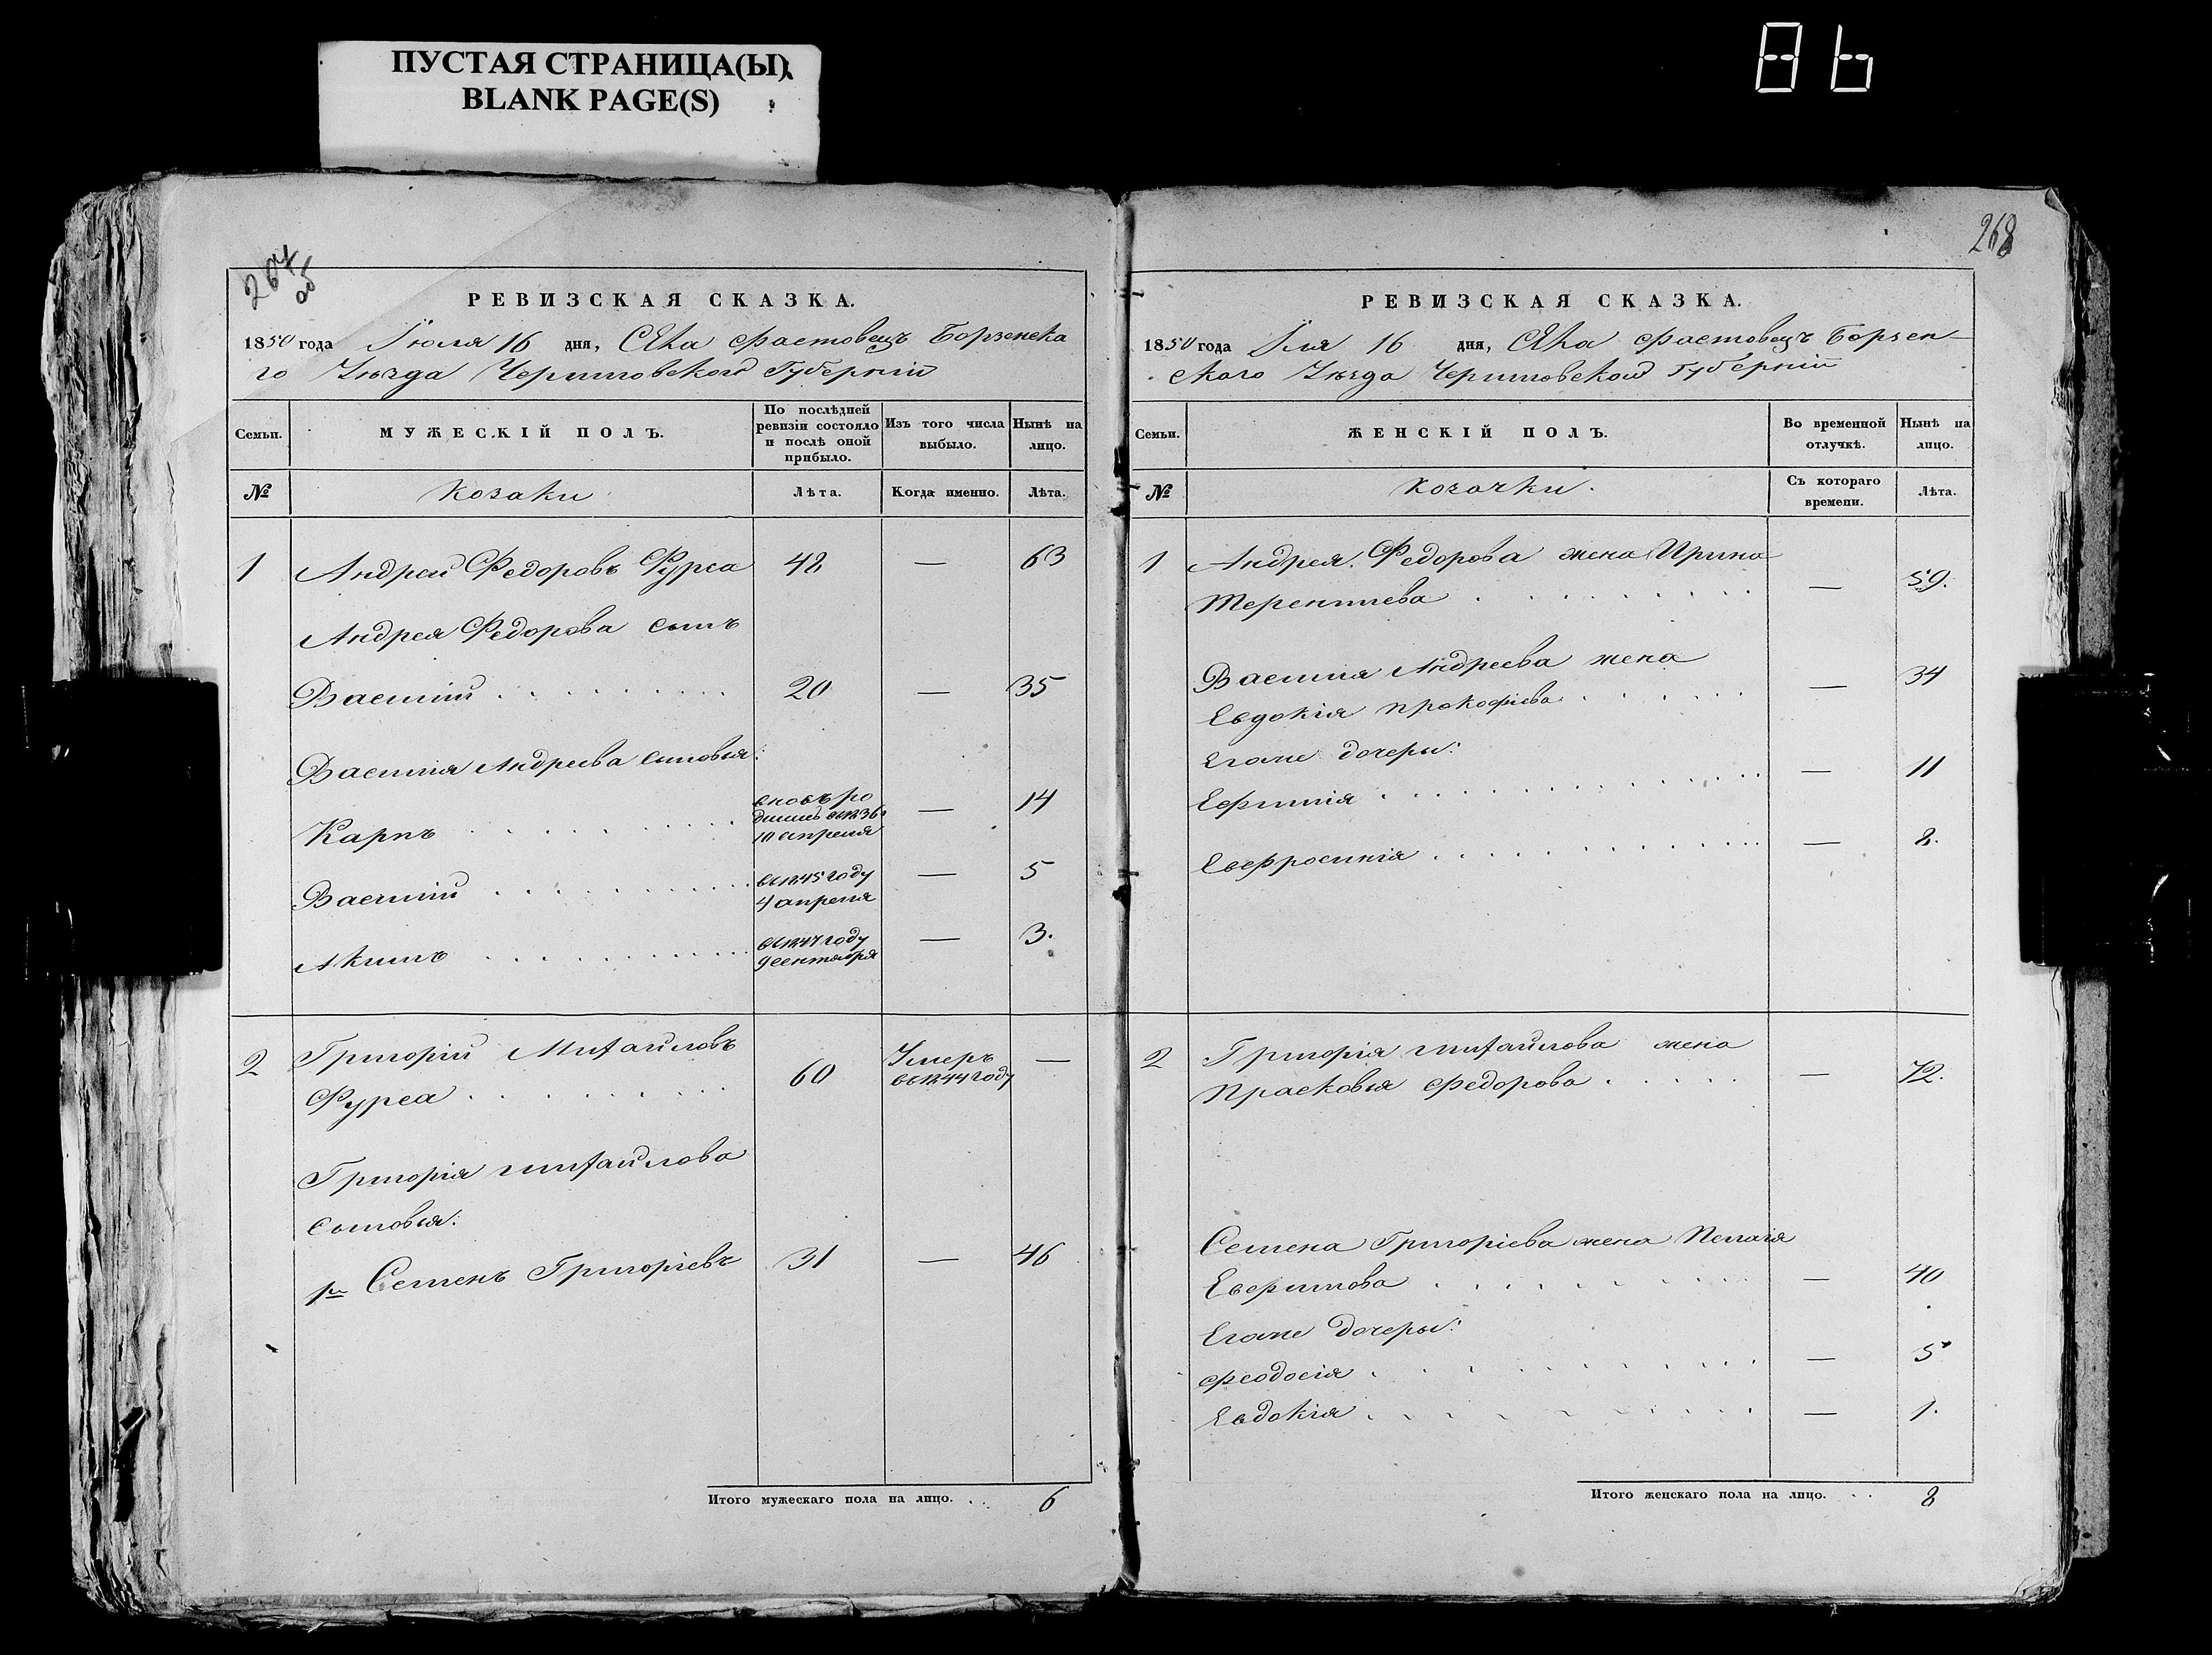 ПУСТАЯ СТРАНИЦА(Ы)
BLANK PAGE(S)
267
об
РЕВИЗСКАЯ СКАЗКА.
1850 года Іюля 16 дня, Села Фастовецъ Борзенска
го Уѣзда Черниговской Губерніи
Семьи.
МУЖЕСКІЙ ПОЛЪ.
По послѣдней ревизіи состояло и послѣ оной прибыло.
Изъ того числа выбыло.
Нынѣ на лицо.
№
Козаки
Лѣта.
Когда именно.
Лѣта.
1 Андрей Федоровъ Фурса 48 — 63
Андрея Федорова сынъ
Василій 20 — 35
Василія Андреева сыновья:
Карпъ
вновь ро
дился въ 1836
10 апреля
— 14
Василій
въ 1845 году
4 апреля
— 5
Акимъ
въ 1847 году
9 сентября
— 3.
2 Григорій Михайловъ
Фурса 60
Умеръ
въ 1844 году
—
Григорія Михайлова
сыновья:
1й Семенъ Григоріевъ 31 — 46
Итого мужескаго пола на лицо. . . 6
268
РЕВИЗСКАЯ СКАЗКА.
1850 года Іюля 16 дня, Села Фастовецъ Борзен-
скаго Уѣзда Черниговской Губерніи
Семьи.
ЖЕНСКІЙ ПОЛЪ.
Во временной отлучкѣ.
Нынѣ на лицо.
№
Козачки.
Съ котораго времени.
Лѣта.
1 Андрея Федорова жена Ирина
Терентиева — 59.
Василия Андреева жена
Евдокія Прокофіева — 34
Егоже дочеры:
Ефимія — 11
Евфросинія — 8.
2 Григорія Михайлова жена
Прасковья Федорова — 72.
Семена Григоріева жена Пелагія
— 40
Егоже дочеры:
Феодосія — 5
Евдокія — 1.
Итого женскаго пола на лицо. . . 8